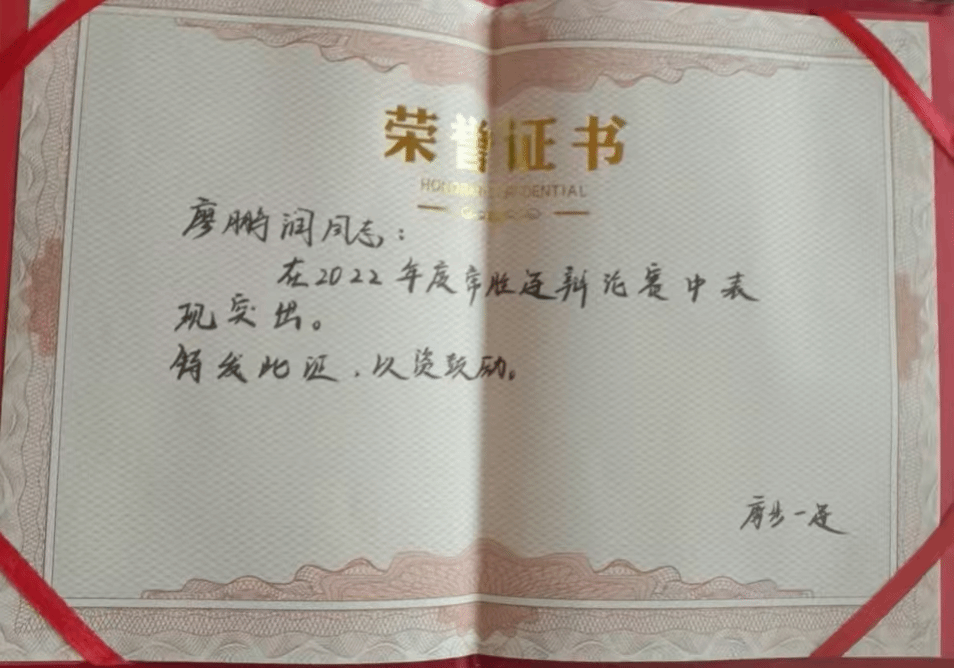 荣誉证书
HONORARY CREDENTIAL
廖鹏润同志：
在2022年度常胜连辩论赛中表
现突出。
特发此证，以资鼓励。
一连